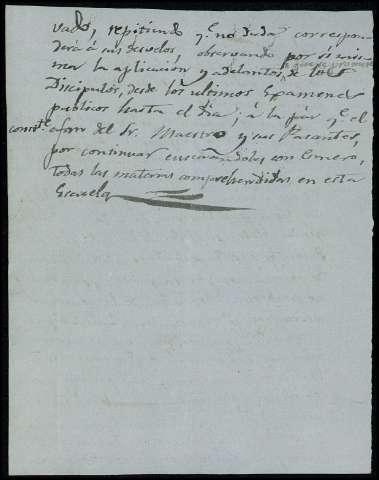 vado, repitiendo q.e no duda correspon
derá á sus desvelos observando por sí mis
mo la aplicacion y adelantos, de los
Discipulos, desde los ultimos Examenes
publicos hasta el dia; á la par q.e el
const.e afan del Sr. Maestro y sus Pasantes,
por continuar enseñandoles con esmero,
todas las materias comprehendidas en esta
Escuela